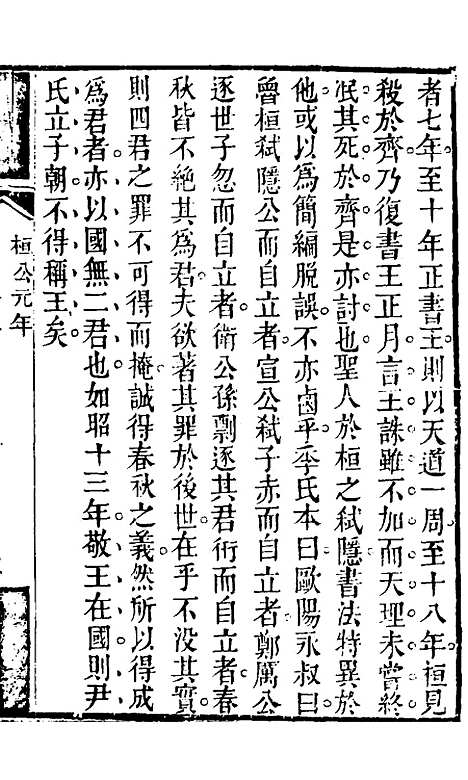 者七年至十年正書王則以天道一周至十八年桓見
殺於齊乃復書王正月言王誅雖不加而天理未嘗終
泯其死於齊是亦討也聖人於桓之弑隱書法特異於
他或以爲簡編脫誤不亦鹵乎季氏本曰歐陽永叔曰
魯桓弑隱公而自立者宣公弑子赤而自立者鄭厲公
逐世子忽而自立者衛公孫剽逐其君衎而自立者春
秋皆不絕其爲君夫欲著其罪於後世在乎不沒其實
則四君之罪不可得而掩誠得春秋之義然所以得成
爲君者亦以國無二君也如昭十三年敬王在國則尹
氏立子朝不得稱王矣
桓公元年